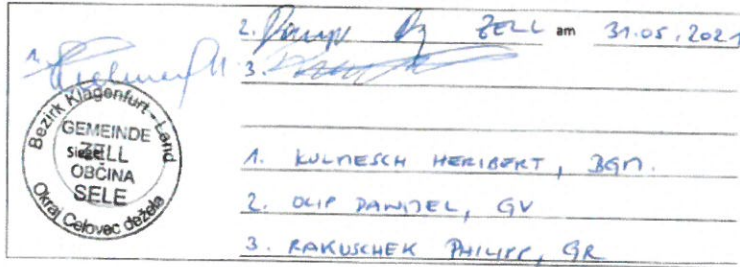 2. ZELL am 31.05.2021
1.
3.
Bezirk Klagenfurt - Land
GEMEINDE
ZELL
Siegel
OBČINA
SELE
Okraj Celovec dežela
1. KULMESCH HERIBERT, BGM.
2. OLIP DANIJEL, GV
3. RAKUSCHEK PHILIPP, GR